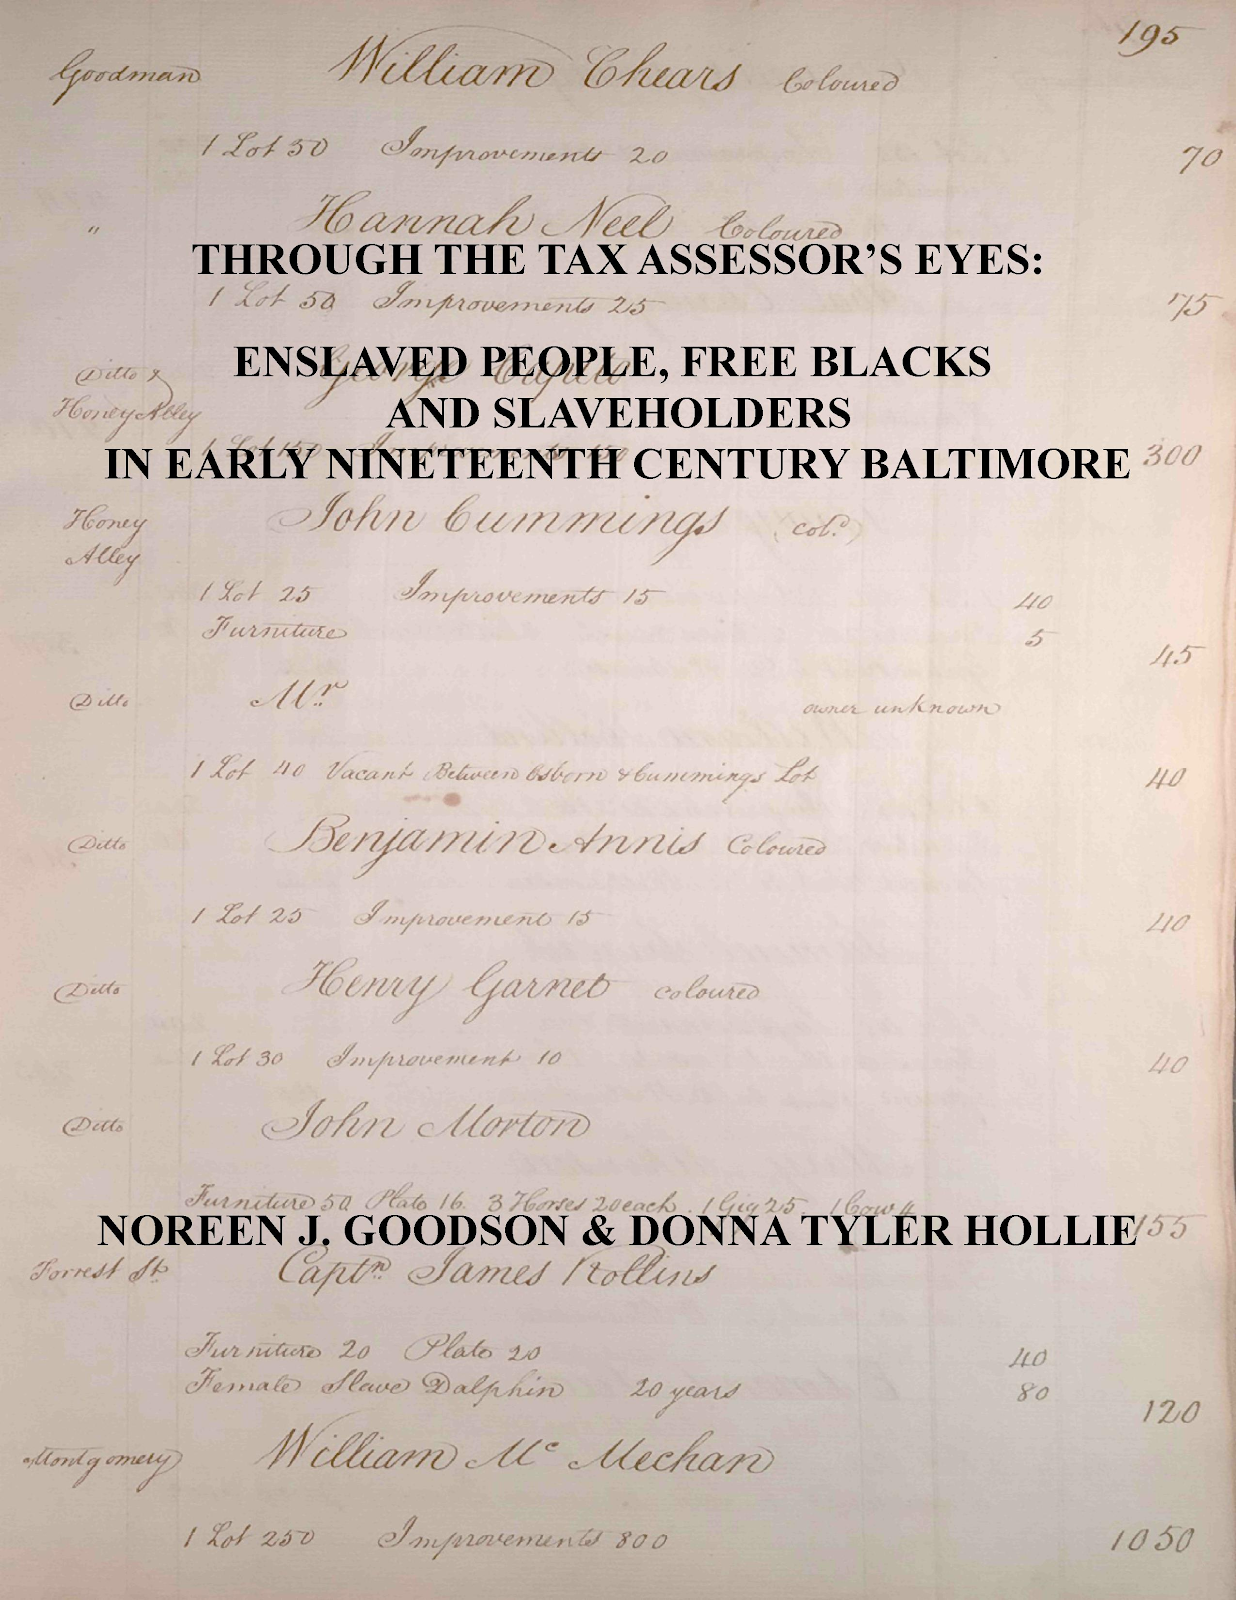 195
Goodman William Chears Coloured
1 Lot 50 Improvements 20 70
" Hannah Neel Coloured
THROUGH THE TAX ASSESSOR'S EYES:
1 Lot 50 Improvements 25 75
ENSLAVED PEOPLE, FREE BLACKS
Ditto & George
Honey Alley
AND SLAVEHOLDERS
1 Lot 150 Improvements 150 300
IN EARLY NINETEENTH CENTURY BALTIMORE
Honey John Cummings (col.d)
Alley
1 Lot 25 Improvements 15 40
Furniture 5
45
Ditto Mr owner unknown
1 Lot 40 Vacant Between Osborn & Cummings Lot 40
Ditto Benjamin Annis Coloured
1 Lot 25 Improvement 15 40
Ditto Henry Garnet coloured
1 Lot 30 Improvement 10 40
Ditto John Morton
Furniture 50 Plate 16. 3 Horses 20 each. 1 Gig 25. 1 Cow 4
155
NOREEN J. GOODSON & DONNA TYLER HOLLIE
Forrest St. Captn James Rollins
Furniture 20 Plate 20 40
Female Slave Dalphin 20 years 80
120
Montgomery William Mc Mechan
1 Lot 250 Improvements 800 1050